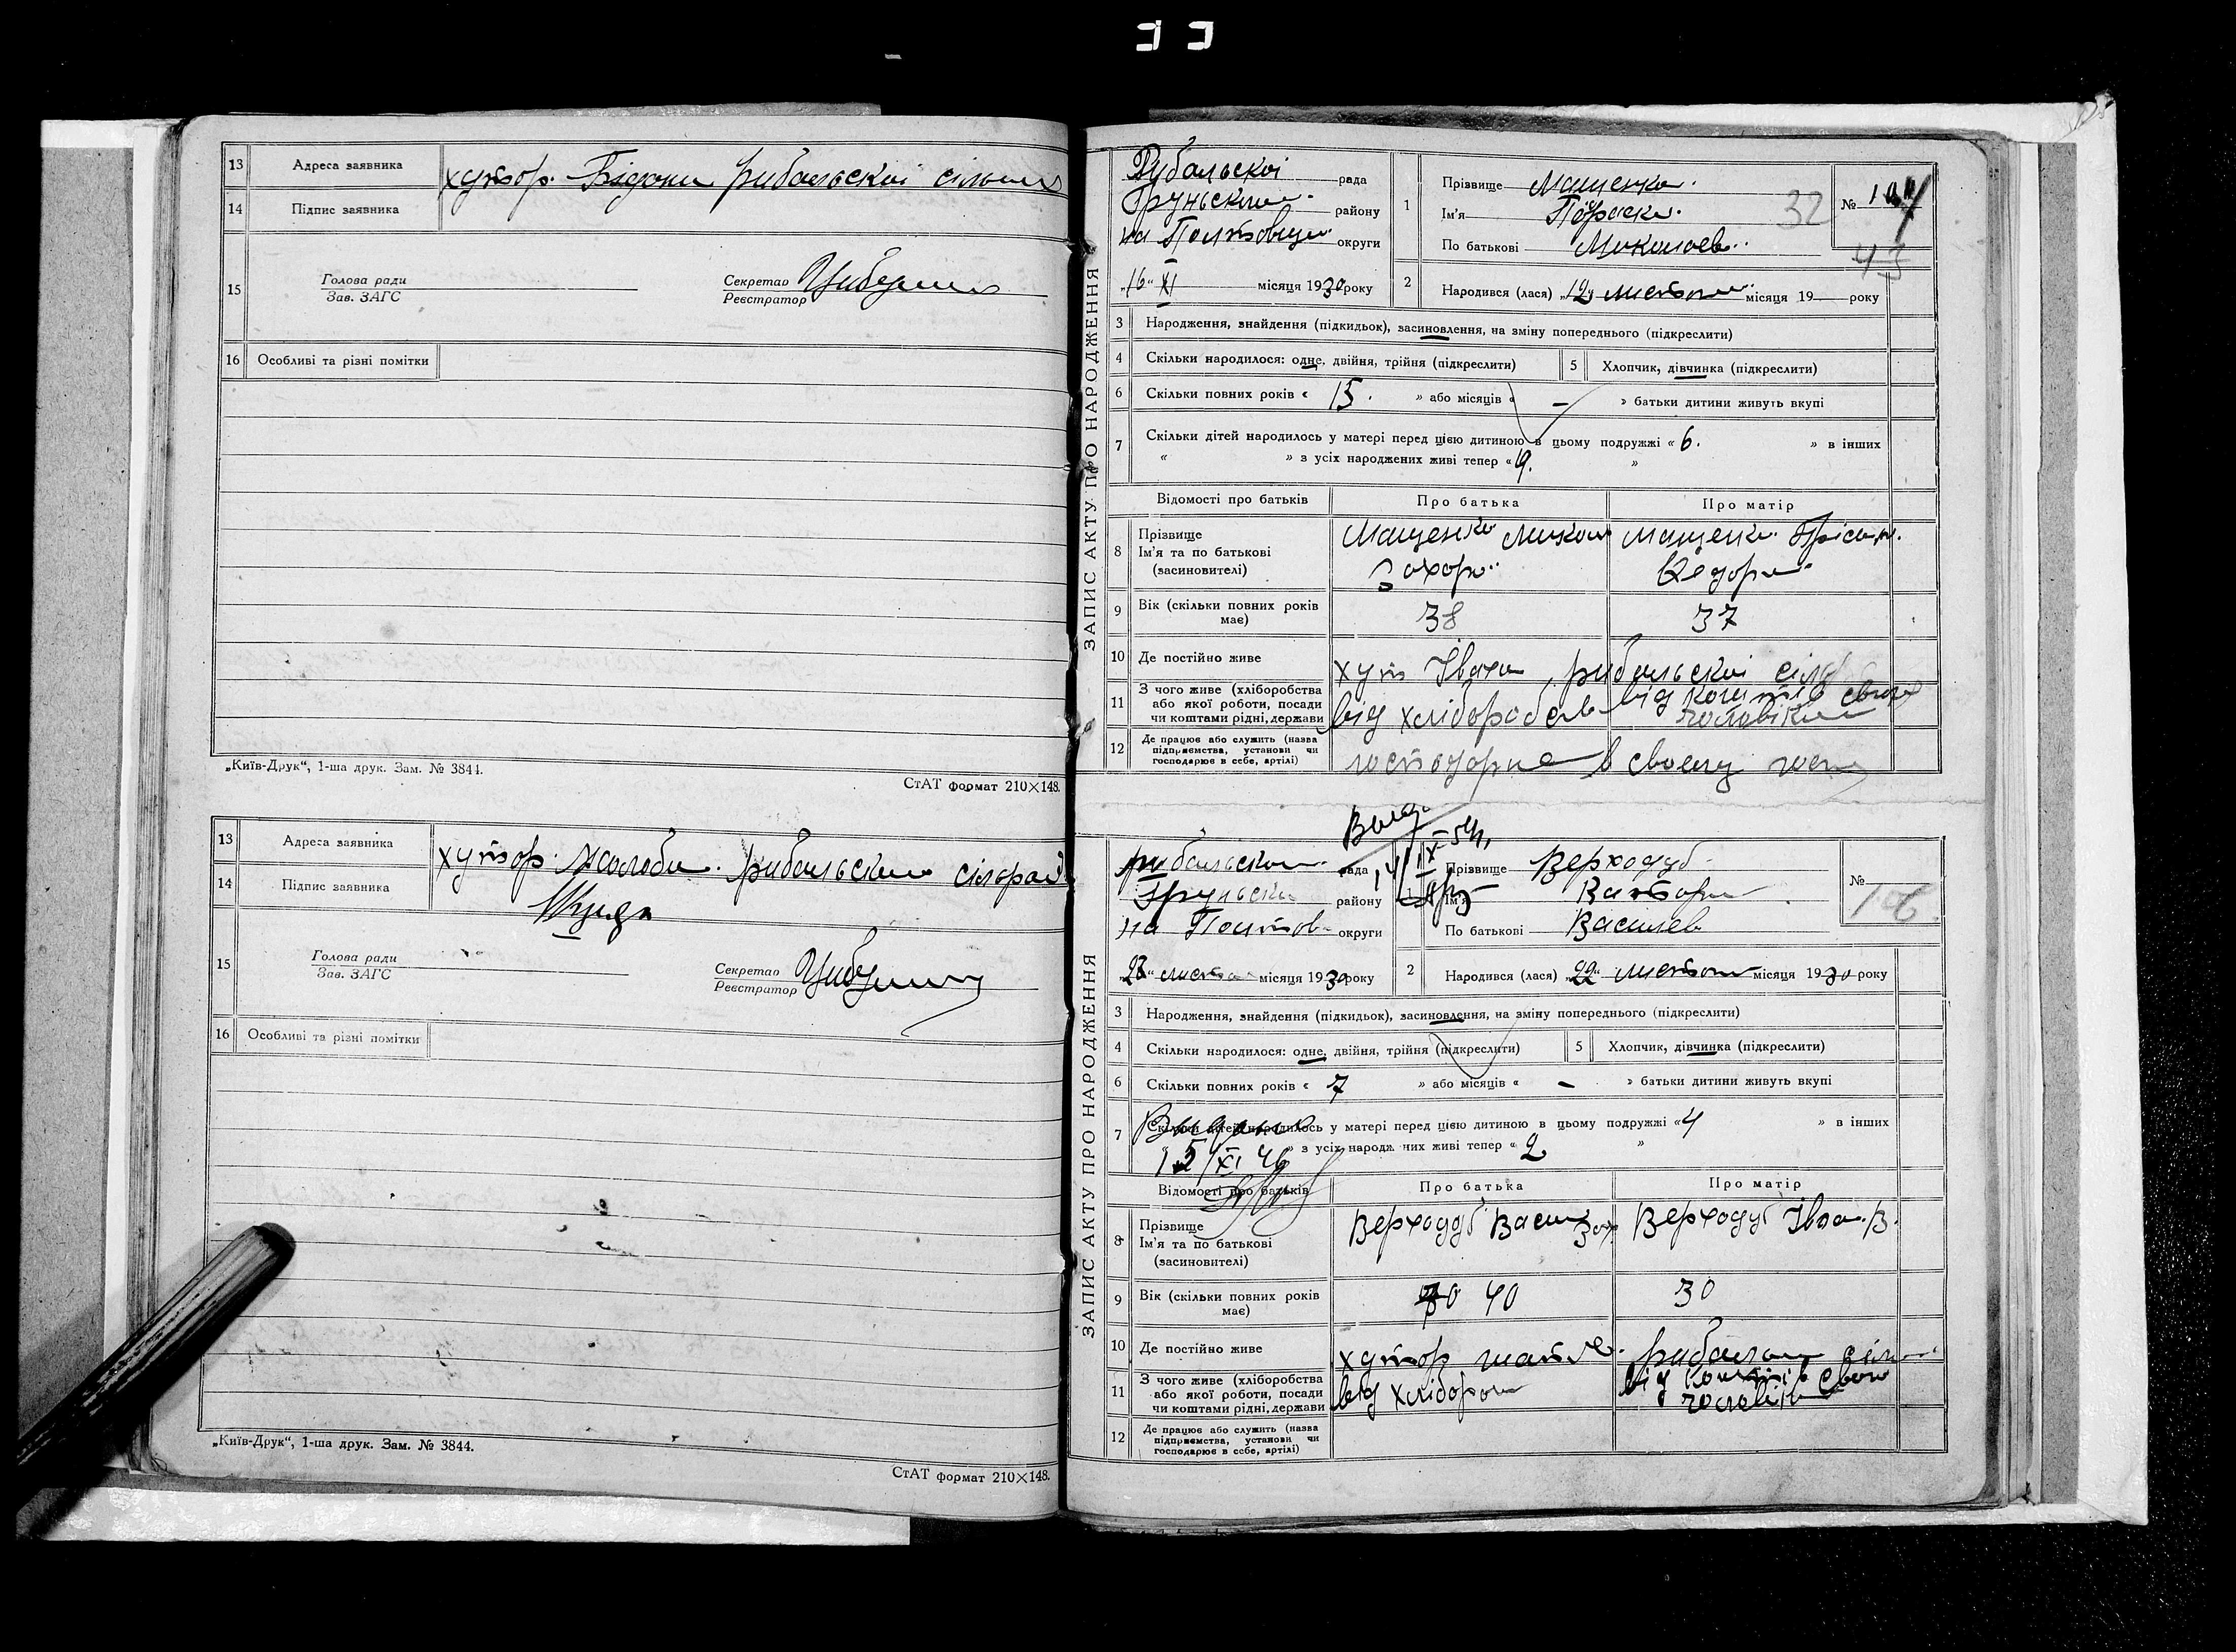 13 Адреса заявника хутор. Бідани рибальскої сільс
14 Підпис заявника
15 Голова ради
Зав. ЗАГС
Секретар
Реєстратор
16 Особливі та різні помітки
„Київ-Друк“, 1-ша друк. Зам. № 3844.
СтАТ формат 210×148.
13 Адреса заявника хутор. рибальскої сілрад
14 Підпис заявника
15 Голова ради
Зав. ЗАГС
Секретар
Реєстратор
16 Особливі та різні помітки
„Київ-Друк“, 1-ша друк. Зам. № 3844.
СтАТ формат 210×148.
ЗАПИС АКТУ ПРО НАРОДЖЕННЯ
Рубальскої рада
Груньского району
на Полтовщи округи
„16“ XI місяця 1930 року
1 Прізвище Мащенко
Ім'я Параска
По батькові Миколаев.
32
№
43
2 Народився (лася) „12“ листоп місяця 19 року
3 Народження, знайдення (підкидьок), засиновлення, на зміну попереднього (підкреслити)
4 Скільки народилося: одне, двійня, трійня (підкреслити) 5 Хлопчик, дівчинка (підкреслити)
6 Скільки повних років « 15. » або місяців « – » батьки дитини живуть вкупі
7 Скільки дітей народилось у матері перед цією дитиною в цьому подружжі « 6. » в інших
« » з усіх народжених живі тепер « »
Відомості про батьків Про батька Про матір
8 Прізвище
Ім'я та по батькові
(засиновителі)
Мащенко Микол
Захор.
Мащенко
Федор
9 Вік (скільки повних років має) 38 37
10 Де постійно живе хут Івана, рибальскої сіл
11 З чого живе (хліборобства
або якої роботи, посади
чи коштами рідні, держави
від хлібороб
від коштів свого
чоловіка
12 Де працює або служить (назва
підприємства, установи чи
господарює в себе, артілі)
господарює в своему госп
ЗАПИС АКТУ ПРО НАРОДЖЕННЯ
рибальскои рада
Груньски району
на Полтов округи
листоп місяця 1930 року
1 Прізвище Верходуб
Ім'я Виктори
По батькові Василев
№ 106
2 Народився (лася) „22“ листоп місяця 1930 року
3 Народження, знайдення (підкидьок), засиновлення, на зміну попереднього (підкреслити)
4 Скільки народилося: одне, двійня, трійня (підкреслити) 5 Хлопчик, дівчинка (підкреслити)
6 Скільки повних років « 7 » або місяців « – » батьки дитини живуть вкупі
7 Скільки дітей народилось у матері перед цією дитиною в цьому подружжі « 4 » в інших
» з усіх народж них живі тепер « 2 »
Відомості про батьків Про батька Про матір
8 Прізвище
Ім'я та по батькові
(засиновителі)
Верходуб Васил
Зах
Верходуб В.
9 Вік (скільки повних років має) 40 30
10 Де постійно живе хутор сіл
11 З чого живе (хліборобства
або якої роботи, посади
чи коштами рідні, держави
від хлібороб
від коштів свого
чоловіка
12 Де працює або служить (назва
підприємства, установи чи
господарює в себе, артілі)